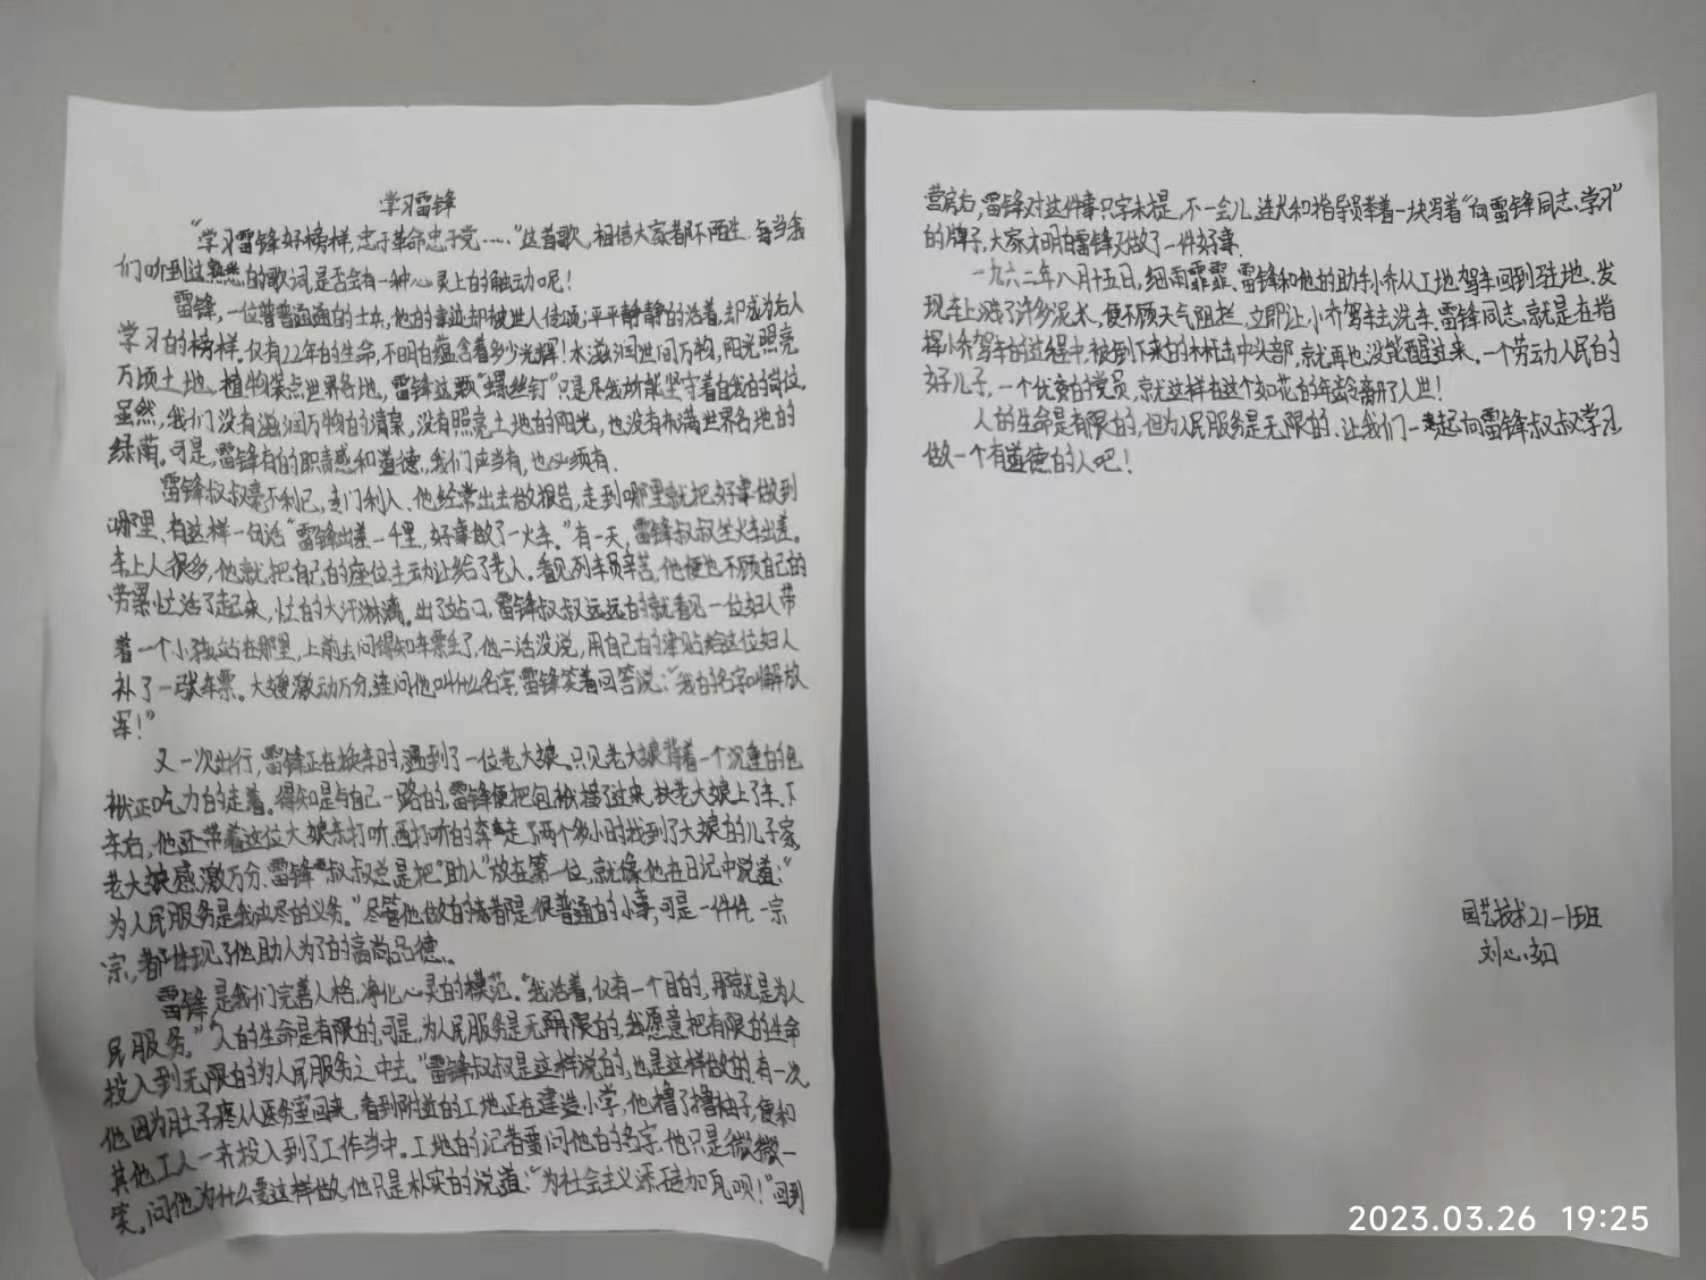 学习雷锋
“学习雷锋好榜样，忠于革命忠于党……”这首歌，相信大家都不陌生.每当我
们听到这熟悉的歌词是否会有一种心灵上的触动呢！
雷锋，一位普普通通的士兵，他的事迹却被世人传颂；平平静静的活着，却成为后人
学习的榜样.仅有22年的生命，不明白蕴含着多少光辉！水滋润世间万物，阳光照亮
万顷土地.植物装点世界各地，雷锋这颗“螺丝钉”只是尽我所能坚守着自我的岗位.
虽然，我们没有滋润万物的清泉，没有照亮土地的阳光，也没有布满世界各地的
绿荫.可是，雷锋有的职责感和道德，我们应当有，也必须有.
雷锋叔叔毫不利己，专门利人.他经常出去做报告，走到哪里就把好事做到
哪里.有这样一句话“雷锋出差一千里，好事做了一火车.”有一天，雷锋叔叔坐火车出差.
车上人很多，他就把自己的座位主动让给了老人.看见列车员辛苦，他便也不顾自己的
劳累忙活了起来，忙的大汗淋漓.出了站口，雷锋叔叔远远的就看见一位妇人带
着一个小孩站在那里，上前去问得知车票丢了，他二话没说，用自己的津贴给这位妇人
补了一张车票。大嫂激动万分，连问他叫什么名字，雷锋笑着回答说：“我的名字叫解放
军！”
又一次出行，雷锋正在换车时，遇到了一位老大娘.只见老大娘背着一个沉重的包
袱正吃力的走着。得知是与自己一路的，雷锋便把包袱接了过来，扶老大娘上了车.下
车后，他还带着这位大娘东打听西打听的奔走了两个多小时找到了大娘的儿子家，
老大娘感激万分.雷锋叔叔总是把“助人”放在第一位，就像他在日记中说道：“
为人民服务是我应尽的义务.”尽管他做的都是很普通的小事，可是一件件一宗
宗，都体现了他助人为了的高尚品德.
雷锋，是我们完善人格，净化心灵的模范.“我活着，仅有一个目的，那就是为人
民服务.”“人的生命是有限的，可是，为人民服务是无限的，我愿意把有限的生命
投入到无限的为人民服务之中去.”雷锋叔叔是这样说的，也是这样做的.有一次
他因为肚子疼从医务室回来，看到附近的工地正在建造小学，他撸了撸袖子，便和
其他工人一齐投入到了工作当中.工地的记者要问他的名字，他只是微微一
笑，问他为什么要这样做，他只是朴实的说道：“为社会主义添砖加瓦呗！”回到
营房后，雷锋对这件事只字未提，不一会儿，连长和指导员举着一块写着“向雷锋同志学习”
的牌子，大家才明白雷锋又做了一件好事.
一九六二年八月十五日，细雨霏霏.雷锋和他的助手小乔从工地驾车回到驻地.发
现车上溅了许多泥水，便不顾天气阻拦，立即让小乔驾车去洗车.雷锋同志，就是在指
挥小乔驾车的过程中，被倒下来的木杆击中头部，就再也没能醒过来.一个劳动人民的
好儿子，一个优秀的党员，就这样在这个如花的年龄离开了人世！
人的生命是有限的，但为人民服务是无限的.让我们一起向雷锋叔叔学习，
做一个有道德的人吧！
园艺技术21-1班
刘心如
2023.03.26 19:25